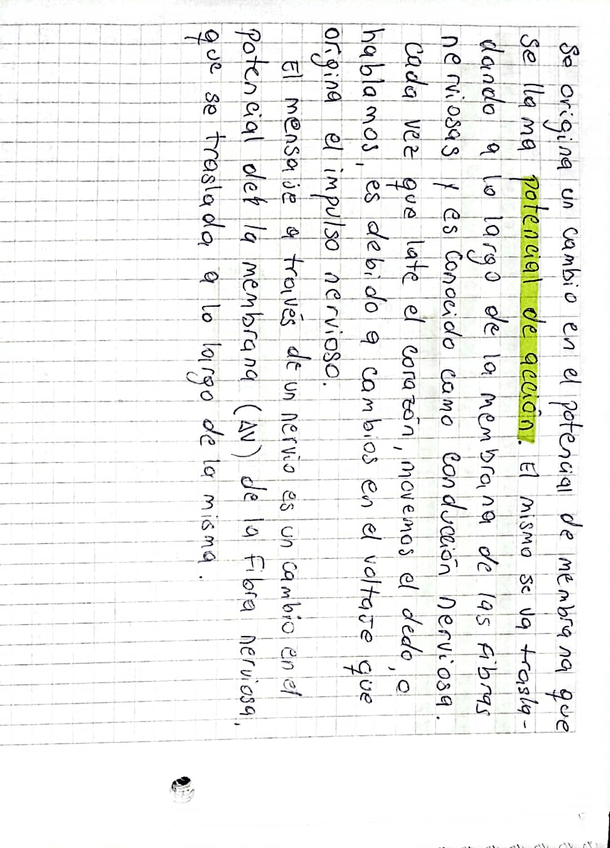 Se origina un cambio en el potencial de membrana que
se llama potencial de acción. El mismo se va trasla-
dando a lo largo de la membrana de las fibras
nerviosas y es conocido como conducción nerviosa.
Cada vez que late el corazón, movemos el dedo, o
hablamos, es debido a cambios en el voltaje que
origina el impulso nervioso.
El mensaje a través de un nervio es un cambio en el
potencial de la membrana (ΔV) de la fibra nerviosa,
que se traslada a lo largo de la misma.